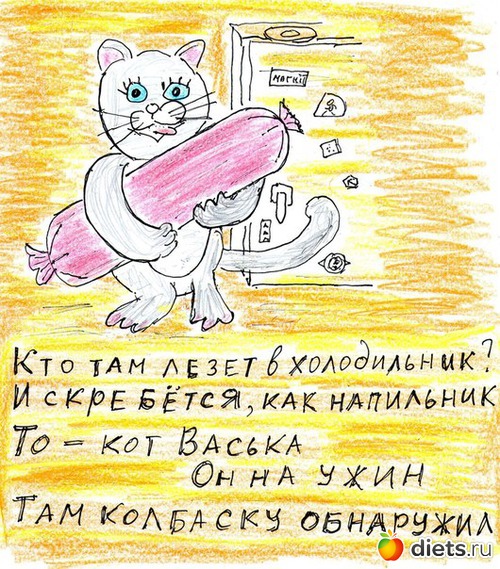 МАГНІТ
Кто там лезет в холодильник?
И скребётся, как напильник
То – кот Васька
Он на ужин
Там колбаску обнаружил
diets.ru